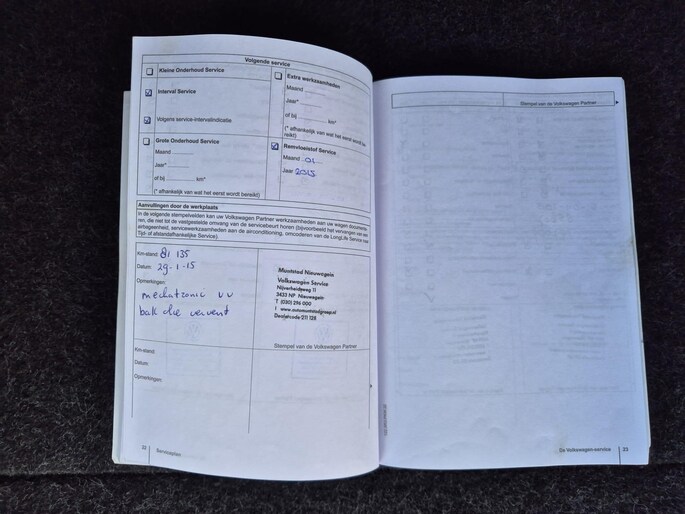 Volgende service
Kleine Onderhoud Service
Interval Service
Volgens service-intervalindicatie
Grote Onderhoud Service
Maand
Jaar*
of bij km*
(* afhankelijk van wat het eerst wordt bereikt)
Extra werkzaamheden
Maand
Jaar*
of bij km*
(* afhankelijk van wat het eerst wordt bereikt)
Remvloeistof Service
Maand 01
Jaar
Aanvullingen door de werkplaats
In de volgende stempelvelden kan uw Volkswagen Partner werkzaamheden aan uw wagen documenteren, die niet tot de vastgestelde omvang van de servicebeurt horen (bijvoorbeeld het vervangen van een
airbageenheid, servicewerkzaamheden aan de airconditioning, omcoderen van de LongLife Service naar
Tijd- of afstandafhankelijke Service).
Km-stand: 81 135
Datum: 29-1-15
Opmerkingen:
mechatronic vv
bak olie ververst
Muntstad Nieuwegein
Volkswagen Service
Nijverheidsweg 11
3433 NP Nieuwegein
T (030) 296 000
Dealercode 211 128
Stempel van de Volkswagen Partner
Km-stand:
Datum:
Opmerkingen:
32 Serviceplan
Stempel van de Volkswagen Partner
De Volkswagen-service 33